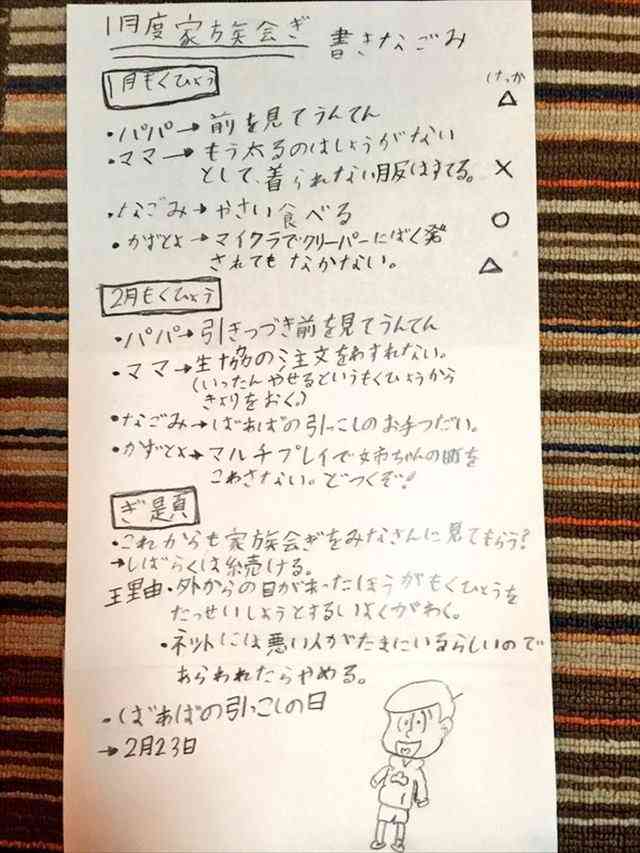 1月度家族会ぎ 書きなごみ
1月もくひょう けっか
・パパ→前を見てうんてん △
・ママ→もう太るのはしょうがない
として、着られない服はすてる。 ×
・なごみ→やさい食べる ○
・かずとよ→マイクラでクリーパーにばく発
されてもなかない。 △
2月もくひょう
・パパ→引きつづき前を見てうんてん
・ママ→生協の注文をわすれない。
(いったんやせるというもくひょうから
きょりをおく。)
・なごみ→ばあばの引っこしのお手つだい。
・かずとよ→マルチプレイで姉ちゃんの町を
こわさない。どつくぞ!
ぎ題
・これからも家族会ぎをみなさんに見てもらう?
→しばらくは続ける。
理由・外からの目があったほうがもくひょうを
たっせいしようとするいよくがわく。
・ネットには悪い人がたまにいるらしいので
あらわれたらやめる。
・ばあばの引っこしの日
→2月23日